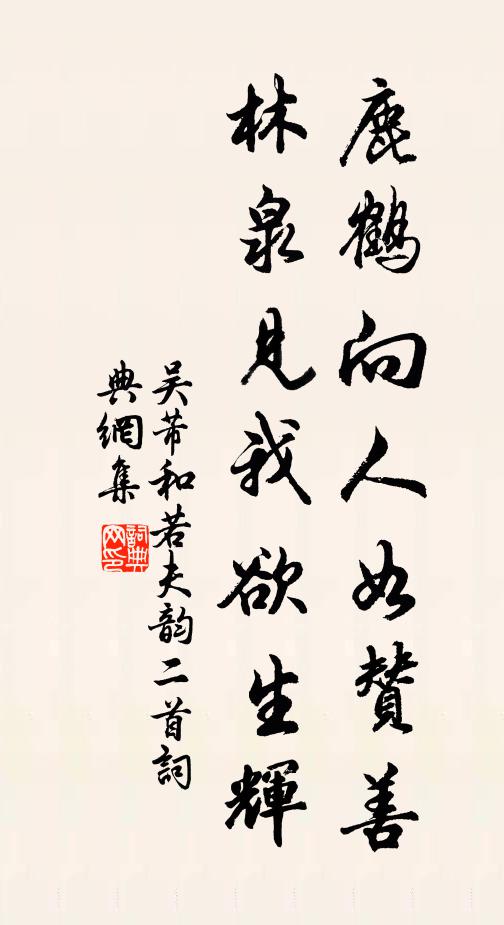 鹿鶴向人如贊善
林泉見我欲生輝
吴芾和若夫韵二首詞
典網集
詞典
网印